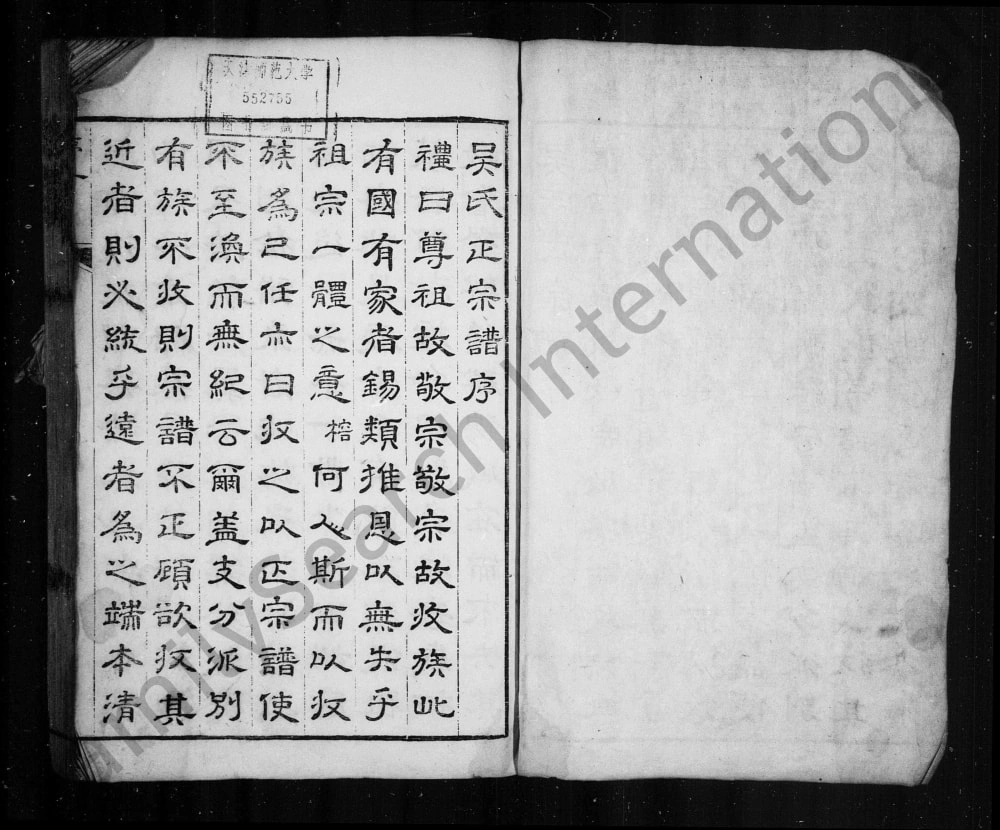 吳氏正宗譜序
禮曰尊祖故敬宗敬宗故收族此
有國有家者錫類推恩以無失乎
祖宗一體之意榕何人斯而以收
族為己任亦曰收之以正宗譜使
不至渙而無紀云爾蓋支分派別
有族不收則宗譜不正顧欲收其
近者則必統乎遠者為之端本清
师范大学
552755
FamilySearch International